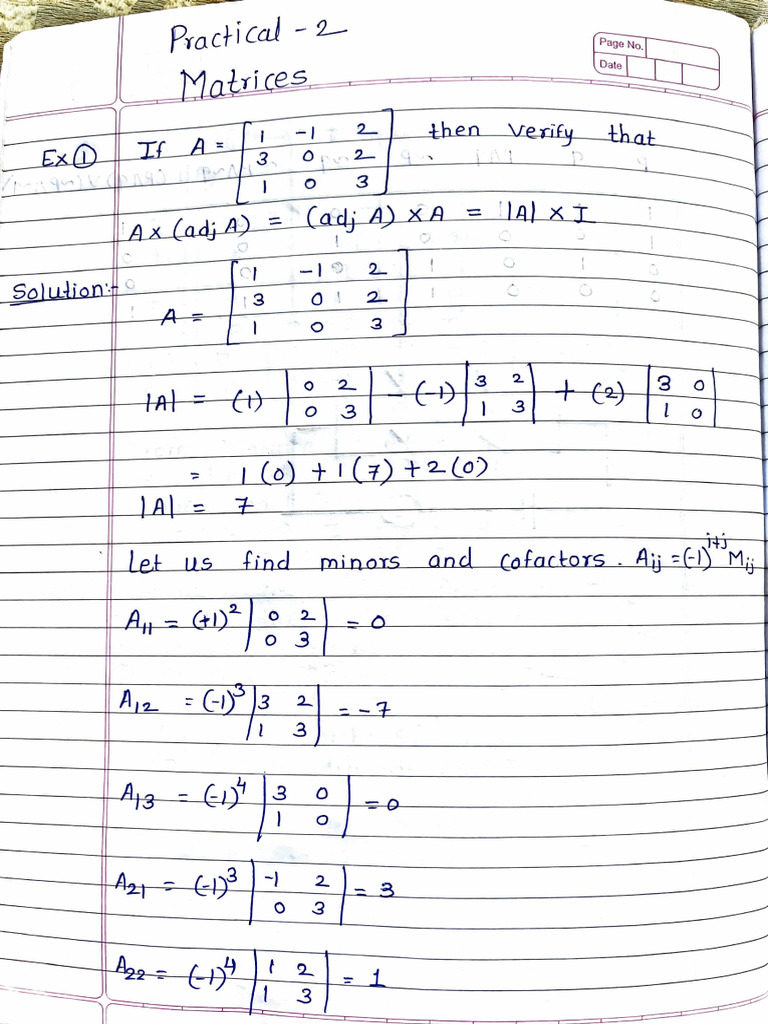 Practical - 2
Page No.
Date
Matrices
Ex ① If A = [1 -1 2; 3 0 2; 1 0 3] then verify that
A × (adj A) = (adj A) × A = |A| × I
Solution:-
A = [1 -1 2; 3 0 2; 1 0 3]
|A| = (1) |0 2; 0 3| - (-1) |3 2; 1 3| + (2) |3 0; 1 0|
= 1(0) + 1(7) + 2(0)
|A| = 7
Let us find minors and cofactors. Aij = (-1)^j+j Mij
A11 = (+1)^2 |0 2; 0 3| = 0
A12 = (-1)^3 |3 2; 1 3| = -7
A13 = (-1)^4 |3 0; 1 0| = 0
A21 = (-1)^3 |-1 2; 0 3| = 3
A22 = (-1)^4 |1 2; 1 3| = 1